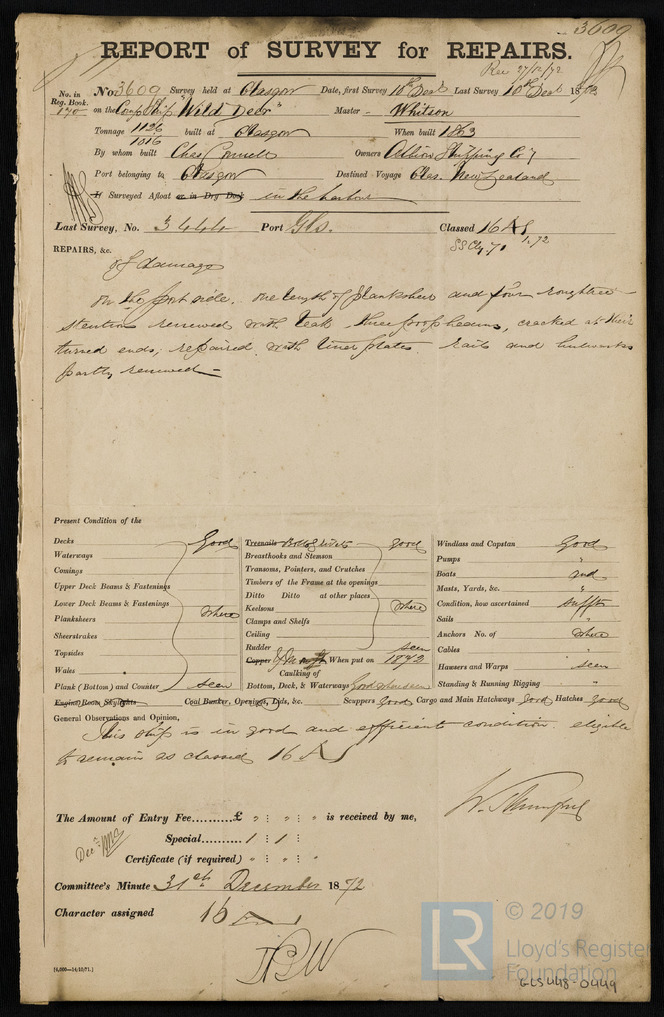 3609
REPORT of SURVEY for REPAIRS.
Rec 27/12/72
No. in Reg. Book.
170
No. 3609 Survey held at Glasgow Date, first Survey 10th Decr Last Survey 10th Decr 1872
on the Comp Ship "Wild Deer" Master Whitson
Tonnage 1126 built at Glasgow When built 1863
1016
By whom built Chas Connell Owners Albion Shipping Coy
Port belonging to Glasgow Destined Voyage Glas. New Zealand
If Surveyed Afloat or in Dry Dock in the harbour
Last Survey, No. 3444 Port Gls. Classed 16 A1
SS Cly. 71 1.72
REPAIRS, &c. of damage
On the port side. One length of planksheer and four roughtree
stentions renewed with teak three poop beams, cracked at their
turned ends, repaired with liner plates. rails and bulwarks
partly renewed —
Present Condition of the
Decks Good
Waterways
Comings
Upper Deck Beams & Fastenings
Lower Deck Beams & Fastenings where
Planksheers
Sheerstrakes
Topsides
Wales
Plank (Bottom) and Counter seen
Treenails Bolts & rivets good
Breasthooks and Stemson
Transoms, Pointers, and Crutches
Timbers of the Frame at the openings
Ditto Ditto at other places
Keelsons where
Clamps and Shelfs
Ceiling
Rudder seen
Copper Y M When put on 1872
Caulking of
Bottom, Deck, & Waterways Good where seen
Windlass and Capstan Good
Pumps "
Boats and
Masts, Yards, &c. "
Condition, how ascertained sufft
Sails "
Anchors No. of where
Cables "
Hawsers and Warps seen
Standing & Running Rigging
Engine Room Skylights Coal Bunker, Openings, Lids, &c. Scuppers good Cargo and Main Hatchways good Hatches good
General Observations and Opinion,
This ship is in good and efficient condition. eligible
to remain as classed 16 A1
The Amount of Entry Fee..........£ " : " : " is received by me,
Special.......... 1 : 1 :
Decr
Certificate (if required) " : " : "
Committee's Minute 31st December 1872
Character assigned 16 A1
[6,000—14/10/71.]
LR
© 2019
Lloyd's Register
Foundation
GLS448-0449